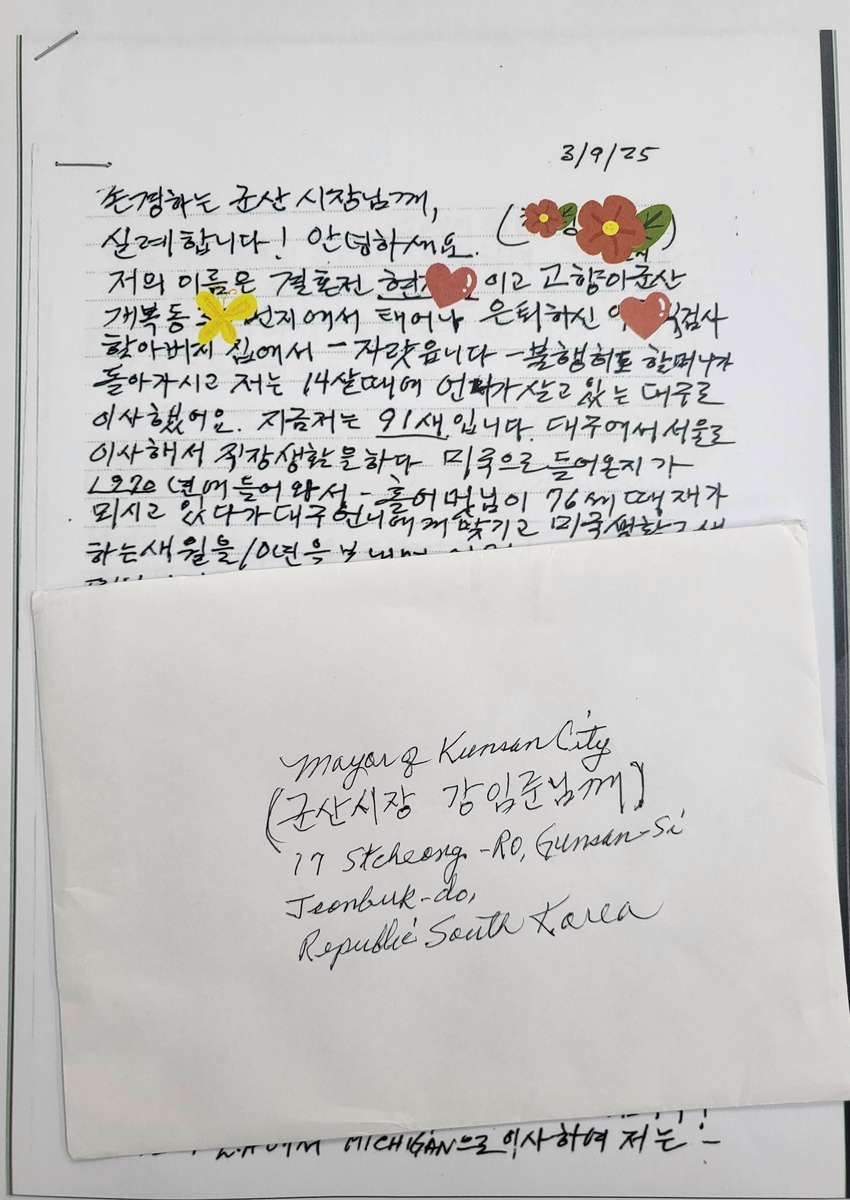 3/9/25
존경하는 군산 시장님께,
실례합니다! 안녕하세요. (
저의 이름은 결혼전 현 이고 고향이군산
개복동 번지에서 태어나 은퇴하신 검사
할아버지 집에서 - 자랐읍니다 - 불행히도 할머니가
돌아가시고 저는 14살때에 언니가 살고 있는 대구로
이사했어요. 지금저는 91세입니다. 대구에서 서울로
이사해서 직장생활을하다 미국으로 들어온지가
1970년에 들어와서 - 홀어머님이 76세때 제가
뫼시고 있다가 대구언니에게 맞기고 미국생활
하는세월을 10년을
Mayor of Kunsan City
(군산시장 강임준님께)
17 Stcheong-Ro, Gunsan-Si
Jeonbuk-do,
Republic South Korea
에서 MICHIGAN으로 이사하여 저는 -